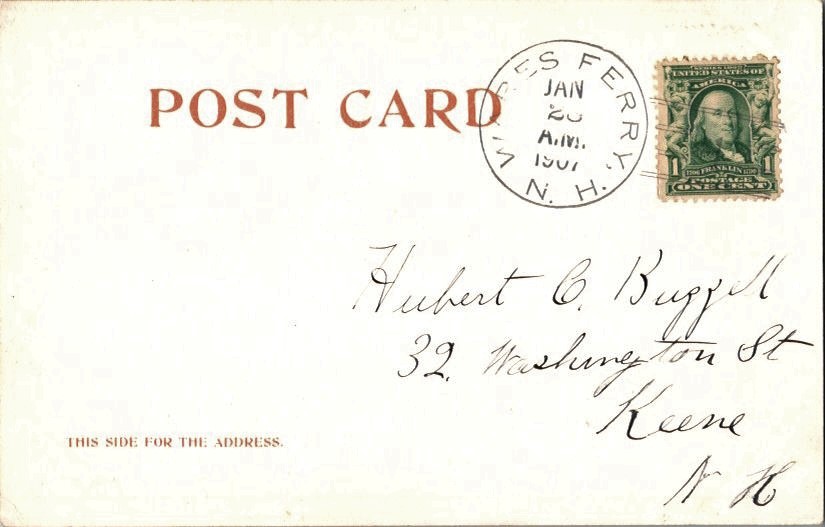 POST CARD
WARES FERRY, N. H.
JAN
A.M.
1907
SERIES 1902
UNITED STATES OF
AMERICA
1 1
1706 FRANKLIN 1790
POSTAGE
ONE CENT
Hubert C. Buzzell
32. Washington St
Keene
N H
THIS SIDE FOR THE ADDRESS.